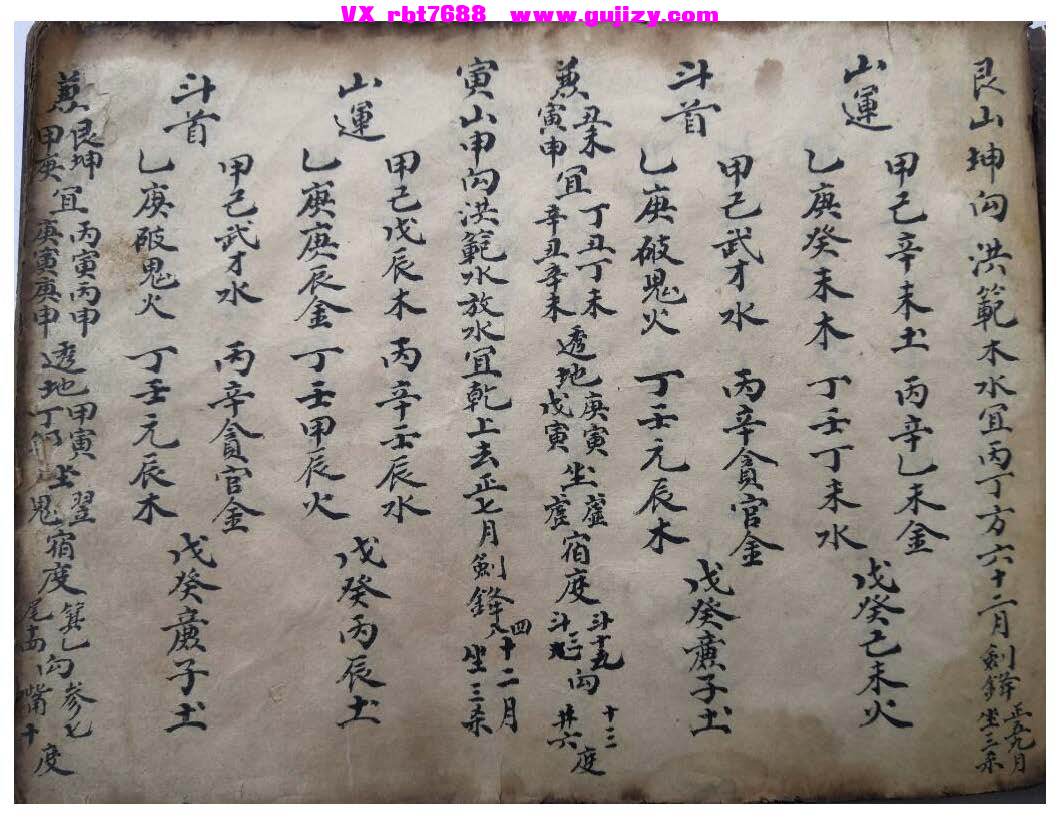 VX rbt7688 www.gujizy.com
艮山坤向洪範木水宜丙丁方六十二月劍鋒正五九月坐三杀
山運
甲己辛未土丙辛乙未金
乙庚癸未木丁壬丁未水
戊癸己未火
斗首
甲己武才水丙辛貪官金
乙庚破鬼火丁壬元辰木
戊癸廉子土
兼丑未寅申宜丁丑丁未辛丑辛未透地庚寅戊寅坐宿度斗十九向十三井六度
寅山申向洪範水放水宜乾上去正七月劍鋒四八十二月坐三杀
山運
甲己戊辰木丙辛壬辰水
乙庚庚辰金丁壬甲辰火
戊癸丙辰土
斗首
甲己武才水丙辛貪官金
乙庚破鬼火丁壬元辰木
戊癸廉子土
兼艮坤甲庚宜丙寅丙申庚寅庚申透地甲寅坐翌鬼宿度箕七尾向参七嘴十度